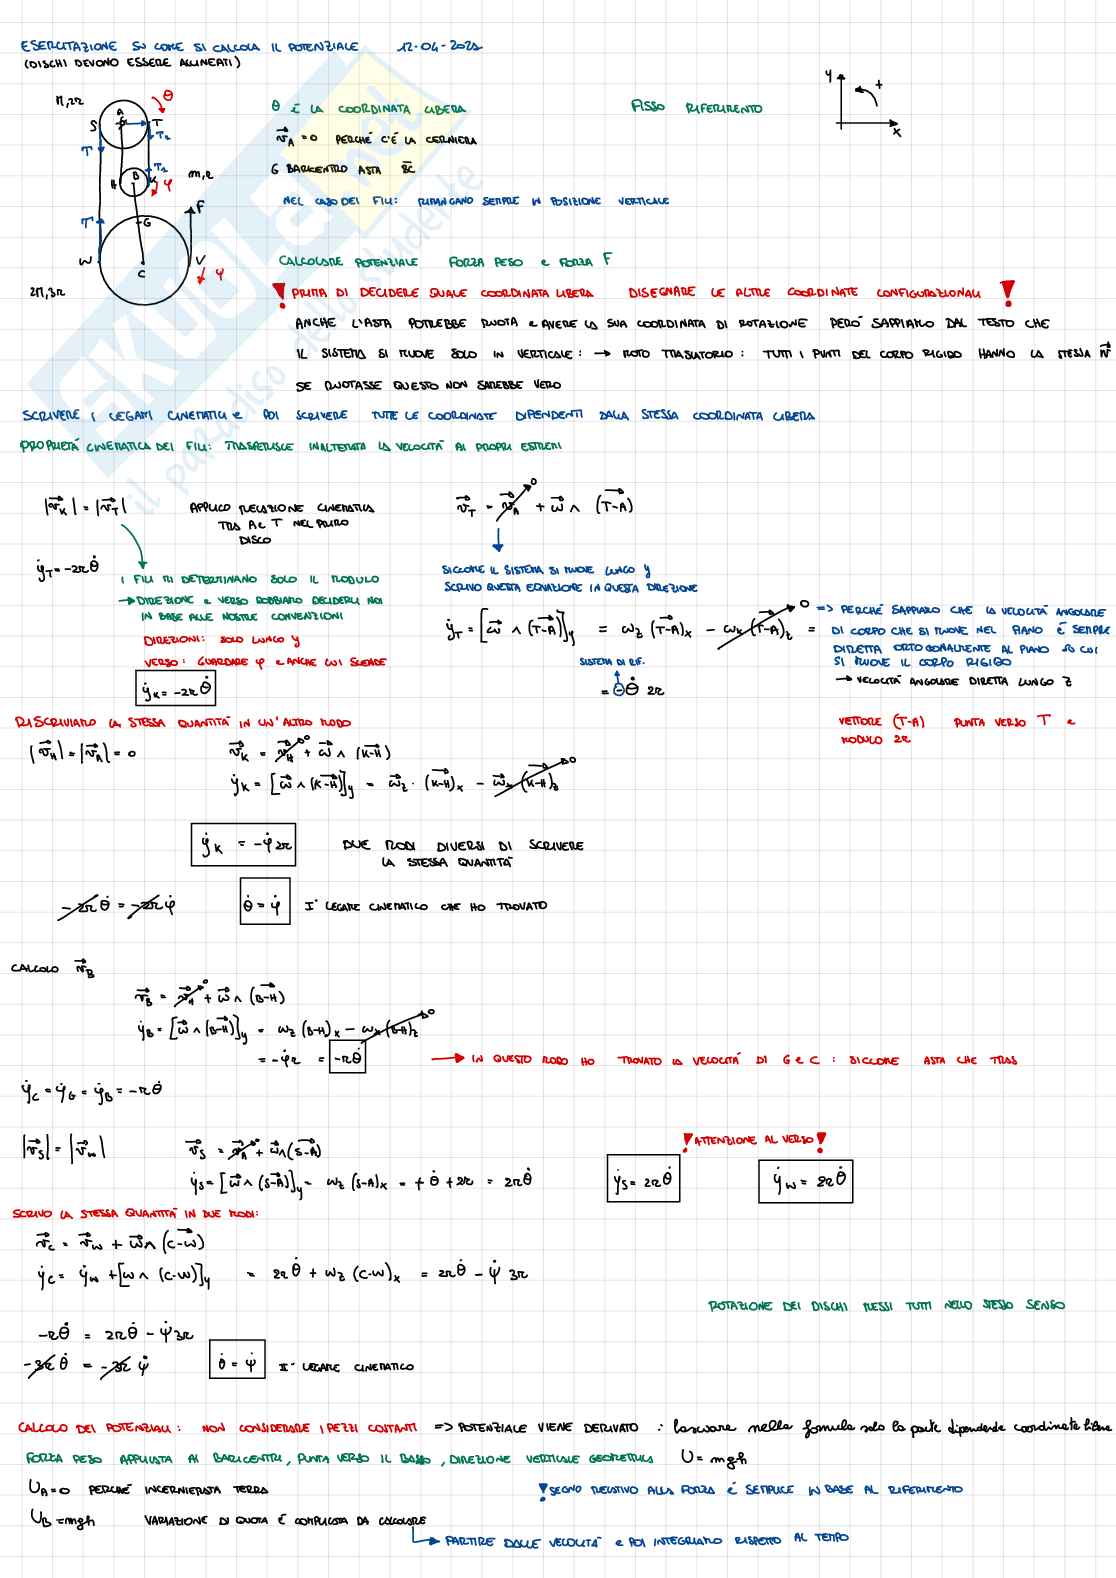 ESERCITAZIONE SU COME SI CALCOLA IL POTENZIALE 12-04-2024
(DISCHI DEVONO ESSERE ALLINEATI)
M,2r
θ
A
S
T
T₂
T
T₂
B
H
K
φ
m,r
T
F
G
W
V
ψ
C
2M,3r
θ È LA COORDINATA LIBERA
v_A = 0 PERCHÉ C'È LA CERNIERA
G BARICENTRO ASTA BC
NEL CASO DEI FILI: RIMANGANO SEMPRE IN POSIZIONE VERTICALE
FISSO RIFERIMENTO
y
+
x
CALCOLARE POTENZIALE FORZA PESO e FORZA F
! PRIMA DI DECIDERE QUALE COORDINATA LIBERA DISEGNARE LE ALTRE COORDINATE CONFIGURAZIONALI !
ANCHE L'ASTA POTREBBE RUOTA e AVERE LA SUA COORDINATA DI ROTAZIONE PERÒ SAPPIAMO DAL TESTO CHE
IL SISTEMA SI MUOVE SOLO IN VERTICALE: → MOTO TRASLATORIO: TUTTI I PUNTI DEL CORPO RIGIDO HANNO LA STESSA v
SE RUOTASSE QUESTO NON SAREBBE VERO
SCRIVERE I LEGAMI CINEMATICI e POI SCRIVERE TUTTE LE COORDINATE DIPENDENTI DALLA STESSA COORDINATA LIBERA
PROPRIETÀ CINEMATICA DEI FILI: TRASFERISCE INALTERATA LA VELOCITÀ AI PROPRI ESTREMI
|v_K| = |v_T|
APPLICO RELAZIONE CINEMATICA
TRA A e T NEL PRIMO
DISCO
v_T = v_A + ω ∧ (T-A)
0
ẏ_T = -2rθ̇
I FILI MI DETERMINANO SOLO IL MODULO
→ DIREZIONE e VERSO DOBBIAMO DECIDERLI NOI
IN BASE ALLE NOSTRE CONVENZIONI
DIREZIONI: SOLO LUNGO y
VERSO: GUARDARE φ e ANCHE LUI SCENDE
ẏ_K = -2rθ̇
SICCOME IL SISTEMA SI MUOVE LUNGO y
SCRIVO QUESTA EQUAZIONE IN QUESTA DIREZIONE
ẏ_T = [ω ∧ (T-A)]_y = ω_z (T-A)_x - ω_x (T-A)_z =
0
SISTEMA DI RIF.
= -θ̇ 2r
=> PERCHÉ SAPPIAMO CHE LA VELOCITÀ ANGOLARE
DI CORPO CHE SI MUOVE NEL PIANO È SEMPRE
DIRETTA ORTOGONALMENTE AL PIANO SU CUI
SI MUOVE IL CORPO RIGIDO
→ VELOCITÀ ANGOLARE DIRETTA LUNGO z
VETTORE (T-A) PUNTA VERSO T e
MODULO 2r
RISCRIVIAMO LA STESSA QUANTITÀ IN UN'ALTRO MODO
|v_H| = |v_A| = 0
v_K = v_H + ω ∧ (K-H)
0
ẏ_K = [ω ∧ (K-H)]_y = ω_z · (K-H)_x - ω_x (K-H)_z
0
ẏ_K = -φ̇2r
DUE MODI DIVERSI DI SCRIVERE
LA STESSA QUANTITÀ
-2rθ̇ = -2rφ̇
θ̇ = φ̇
I° LEGAME CINEMATICO CHE HO TROVATO
CALCOLO v_B
v_B = v_H + ω ∧ (B-H)
0
ẏ_B = [ω ∧ (B-H)]_y = ω_z (B-H)_x - ω_x (B-H)_z
0
= -φ̇r = -rθ̇
→ IN QUESTO MODO HO TROVATO LA VELOCITÀ DI G e C: SICCOME ASTA CHE TRAS
ẏ_C = ẏ_G = ẏ_B = -rθ̇
|v_S| = |v_W|
v_S = v_A + ω ∧ (S-A)
0
ẏ_S = [ω ∧ (S-A)]_y = ω_z (S-A)_x = +θ̇ +2r = 2rθ̇
! ATTENZIONE AL VERSO !
ẏ_S = 2rθ̇
ẏ_W = 2rθ̇
SCRIVO LA STESSA QUANTITÀ IN DUE MODI:
v_C = v_W + ω ∧ (C-W)
ẏ_C = ẏ_W + [ω ∧ (C-W)]_y = 2rθ̇ + ω_z (C-W)_x = 2rθ̇ - ψ̇ 3r
ROTAZIONE DEI DISCHI MESSI TUTTI NELLO STESSO SENSO
-rθ̇ = 2rθ̇ - ψ̇3r
-3rθ̇ = -3rψ̇
θ̇ = ψ̇
II° LEGAME CINEMATICO
CALCOLO DEI POTENZIALI: NON CONSIDERARE I PEZZI COSTANTI => POTENZIALE VIENE DERIVATO: lasciare nella formula solo la parte dipendente coordinate libere
FORZA PESO APPLICATA AI BARICENTRI, PUNTA VERSO IL BASSO, DIREZIONE VERTICALE GEOMETRICA U = mgh
U_A = 0 PERCHÉ INCERNIERATA TERRA
! SEGNO RELATIVO ALLA FORZA È SEMPLICE IN BASE AL RIFERIMENTO
U_B = mgh VARIAZIONE DI QUOTA È COMPLICATA DA CALCOLARE
→ PARTIRE DALLE VELOCITÀ e POI INTEGRIAMO RISPETTO AL TEMPO
SKUOLA.net
il paradiso dello studente